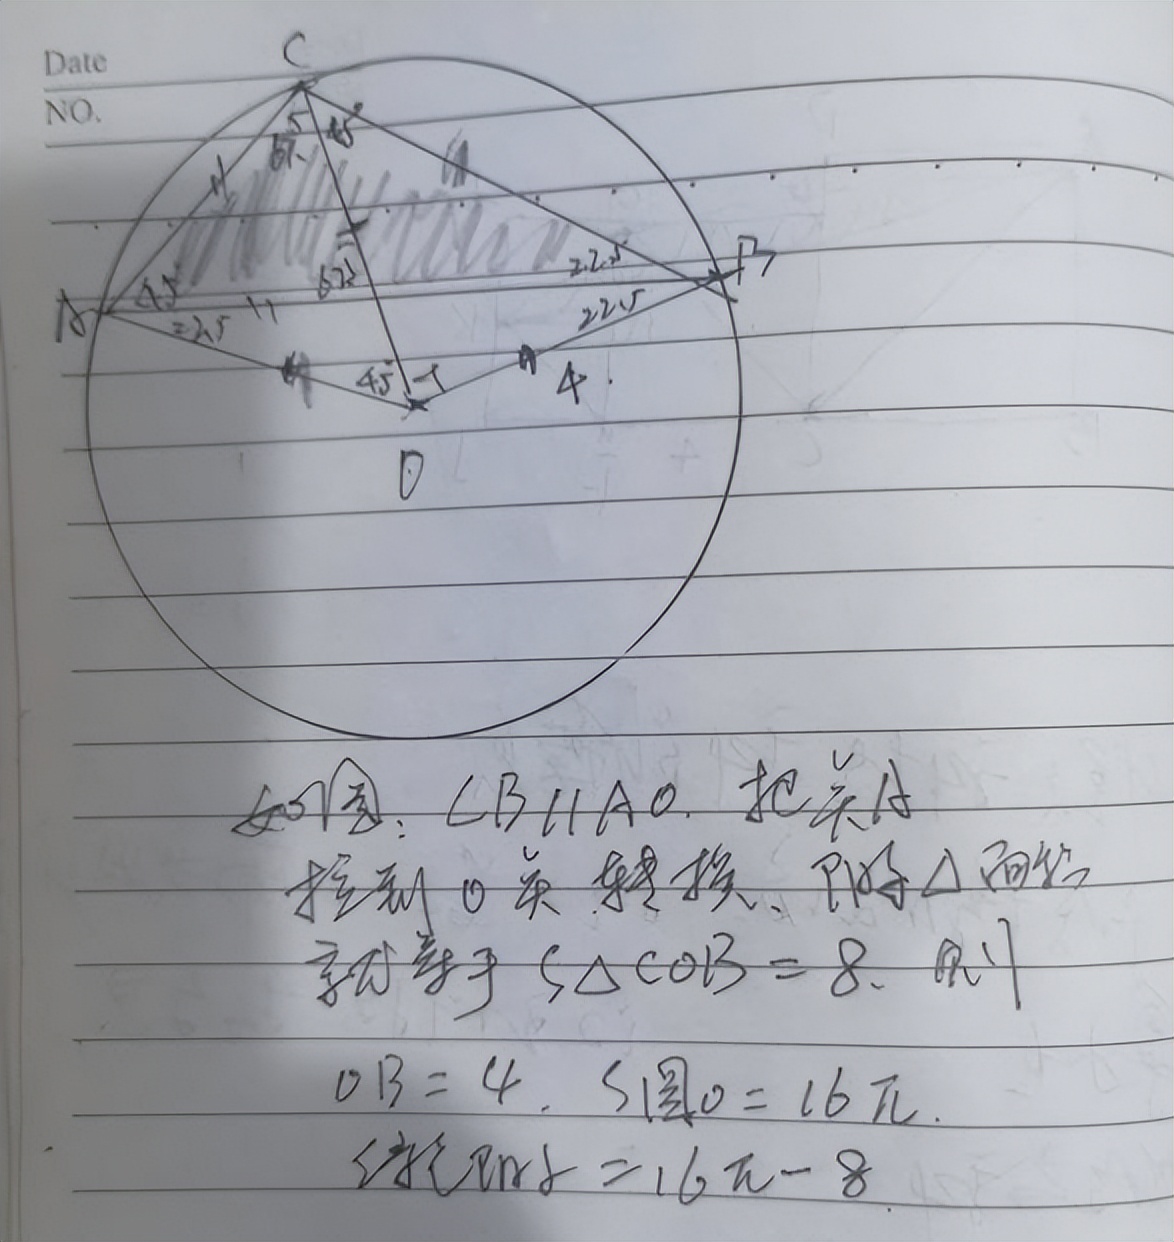 Date
NO.
C
5 45°
67.
A 45 67.5 22.5 B
22.5 22.5
45 4.
O
如图: CB∥AO. 把关A
拉到O关转换、阴影△面积
就等于S△COB=8、则
OB=4. S圆O=16π.
=16π-8